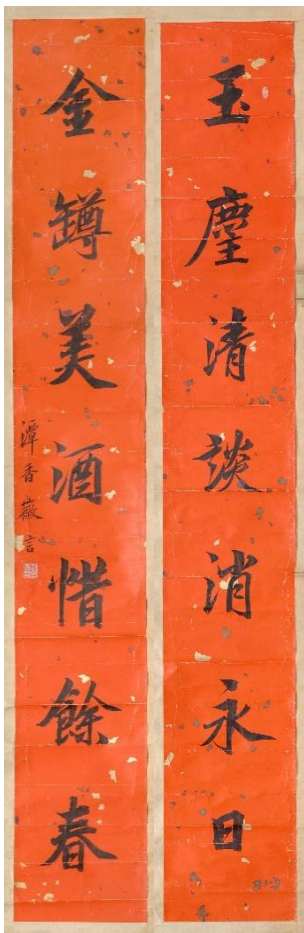 玉麈清談消永日
金罇美酒惜餘春
潭香言